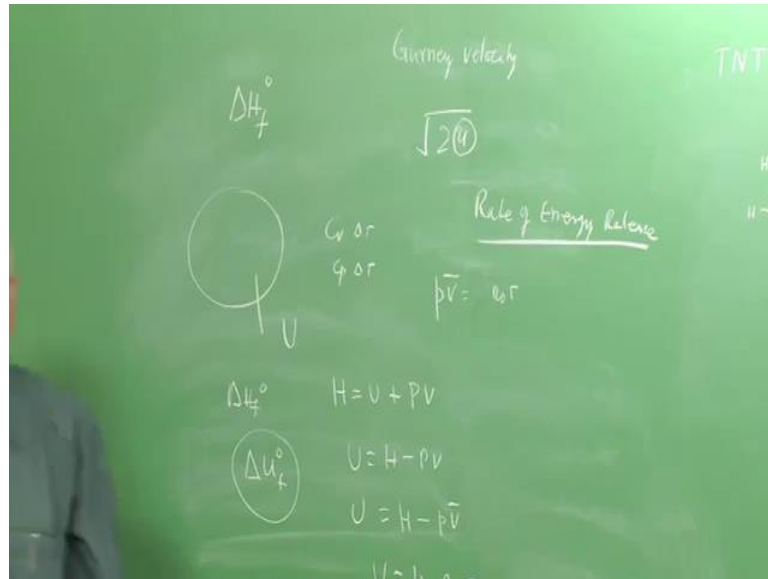 Gurney velocity
TNT
ΔH_f^0
√2u
Rate of Energy Release
C_v ΔT
C_p ΔT
U
ΔH_f^0 H = U + PV
ΔU_f^0 U = H - PV
U = H - pv̄